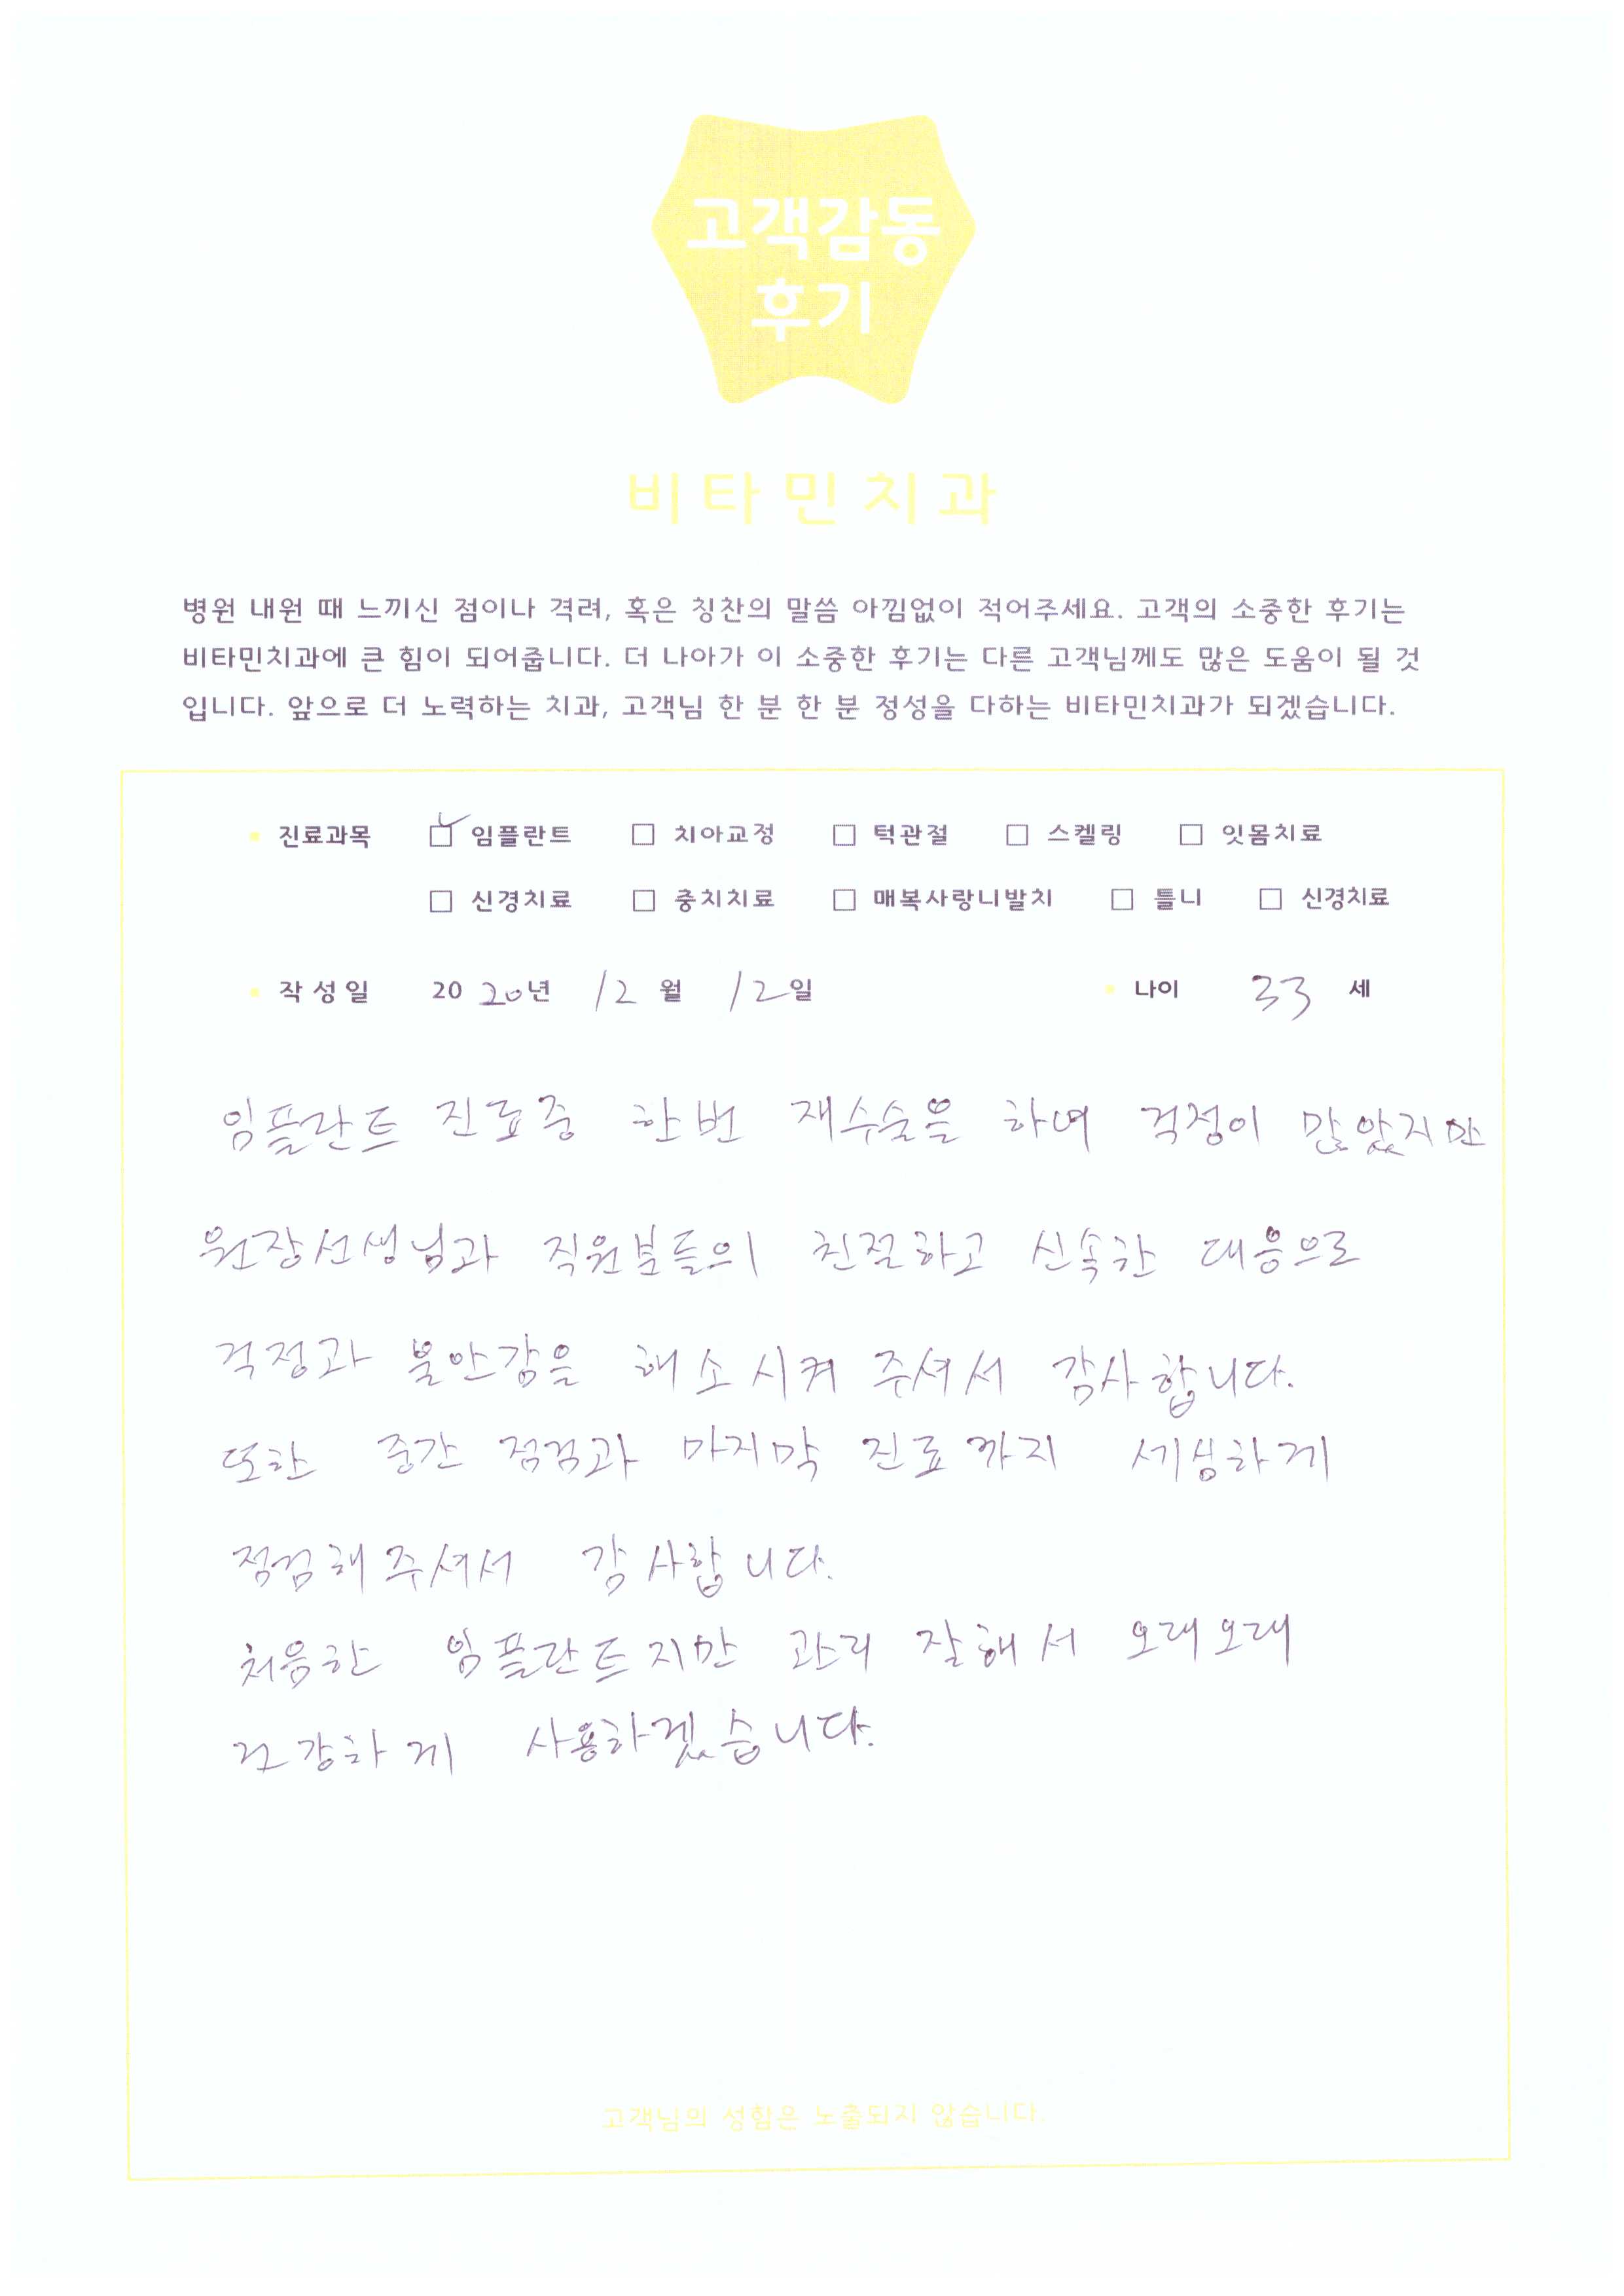 고객감동
후기
비타민치과
병원 내원 때 느끼신 점이나 격려, 혹은 칭찬의 말씀 아낌없이 적어주세요. 고객의 소중한 후기는
비타민치과에 큰 힘이 되어줍니다. 더 나아가 이 소중한 후기는 다른 고객님께도 많은 도움이 될 것
입니다. 앞으로 더 노력하는 치과, 고객님 한 분 한 분 정성을 다하는 비타민치과가 되겠습니다.
진료과목 ☑ 임플란트 □ 치아교정 □ 턱관절 □ 스켈링 □ 잇몸치료
□ 신경치료 □ 충치치료 □ 매복사랑니발치 □ 틀니 □ 신경치료
작성일 2020년 12월 12일 나이 33 세
임플란트 진료중 한번 재수술을 하며 걱정이 많았지만
원장선생님과 직원분들의 친절하고 신속한 대응으로
걱정과 불안감을 해소시켜 주셔서 감사합니다.
또한 중간 점검과 마지막 진료까지 세심하게
점검해주셔서 감사합니다.
처음한 임플란트지만 관리 잘해서 오래오래
건강하게 사용하겠습니다.
고객님의 성함은 노출되지 않습니다.